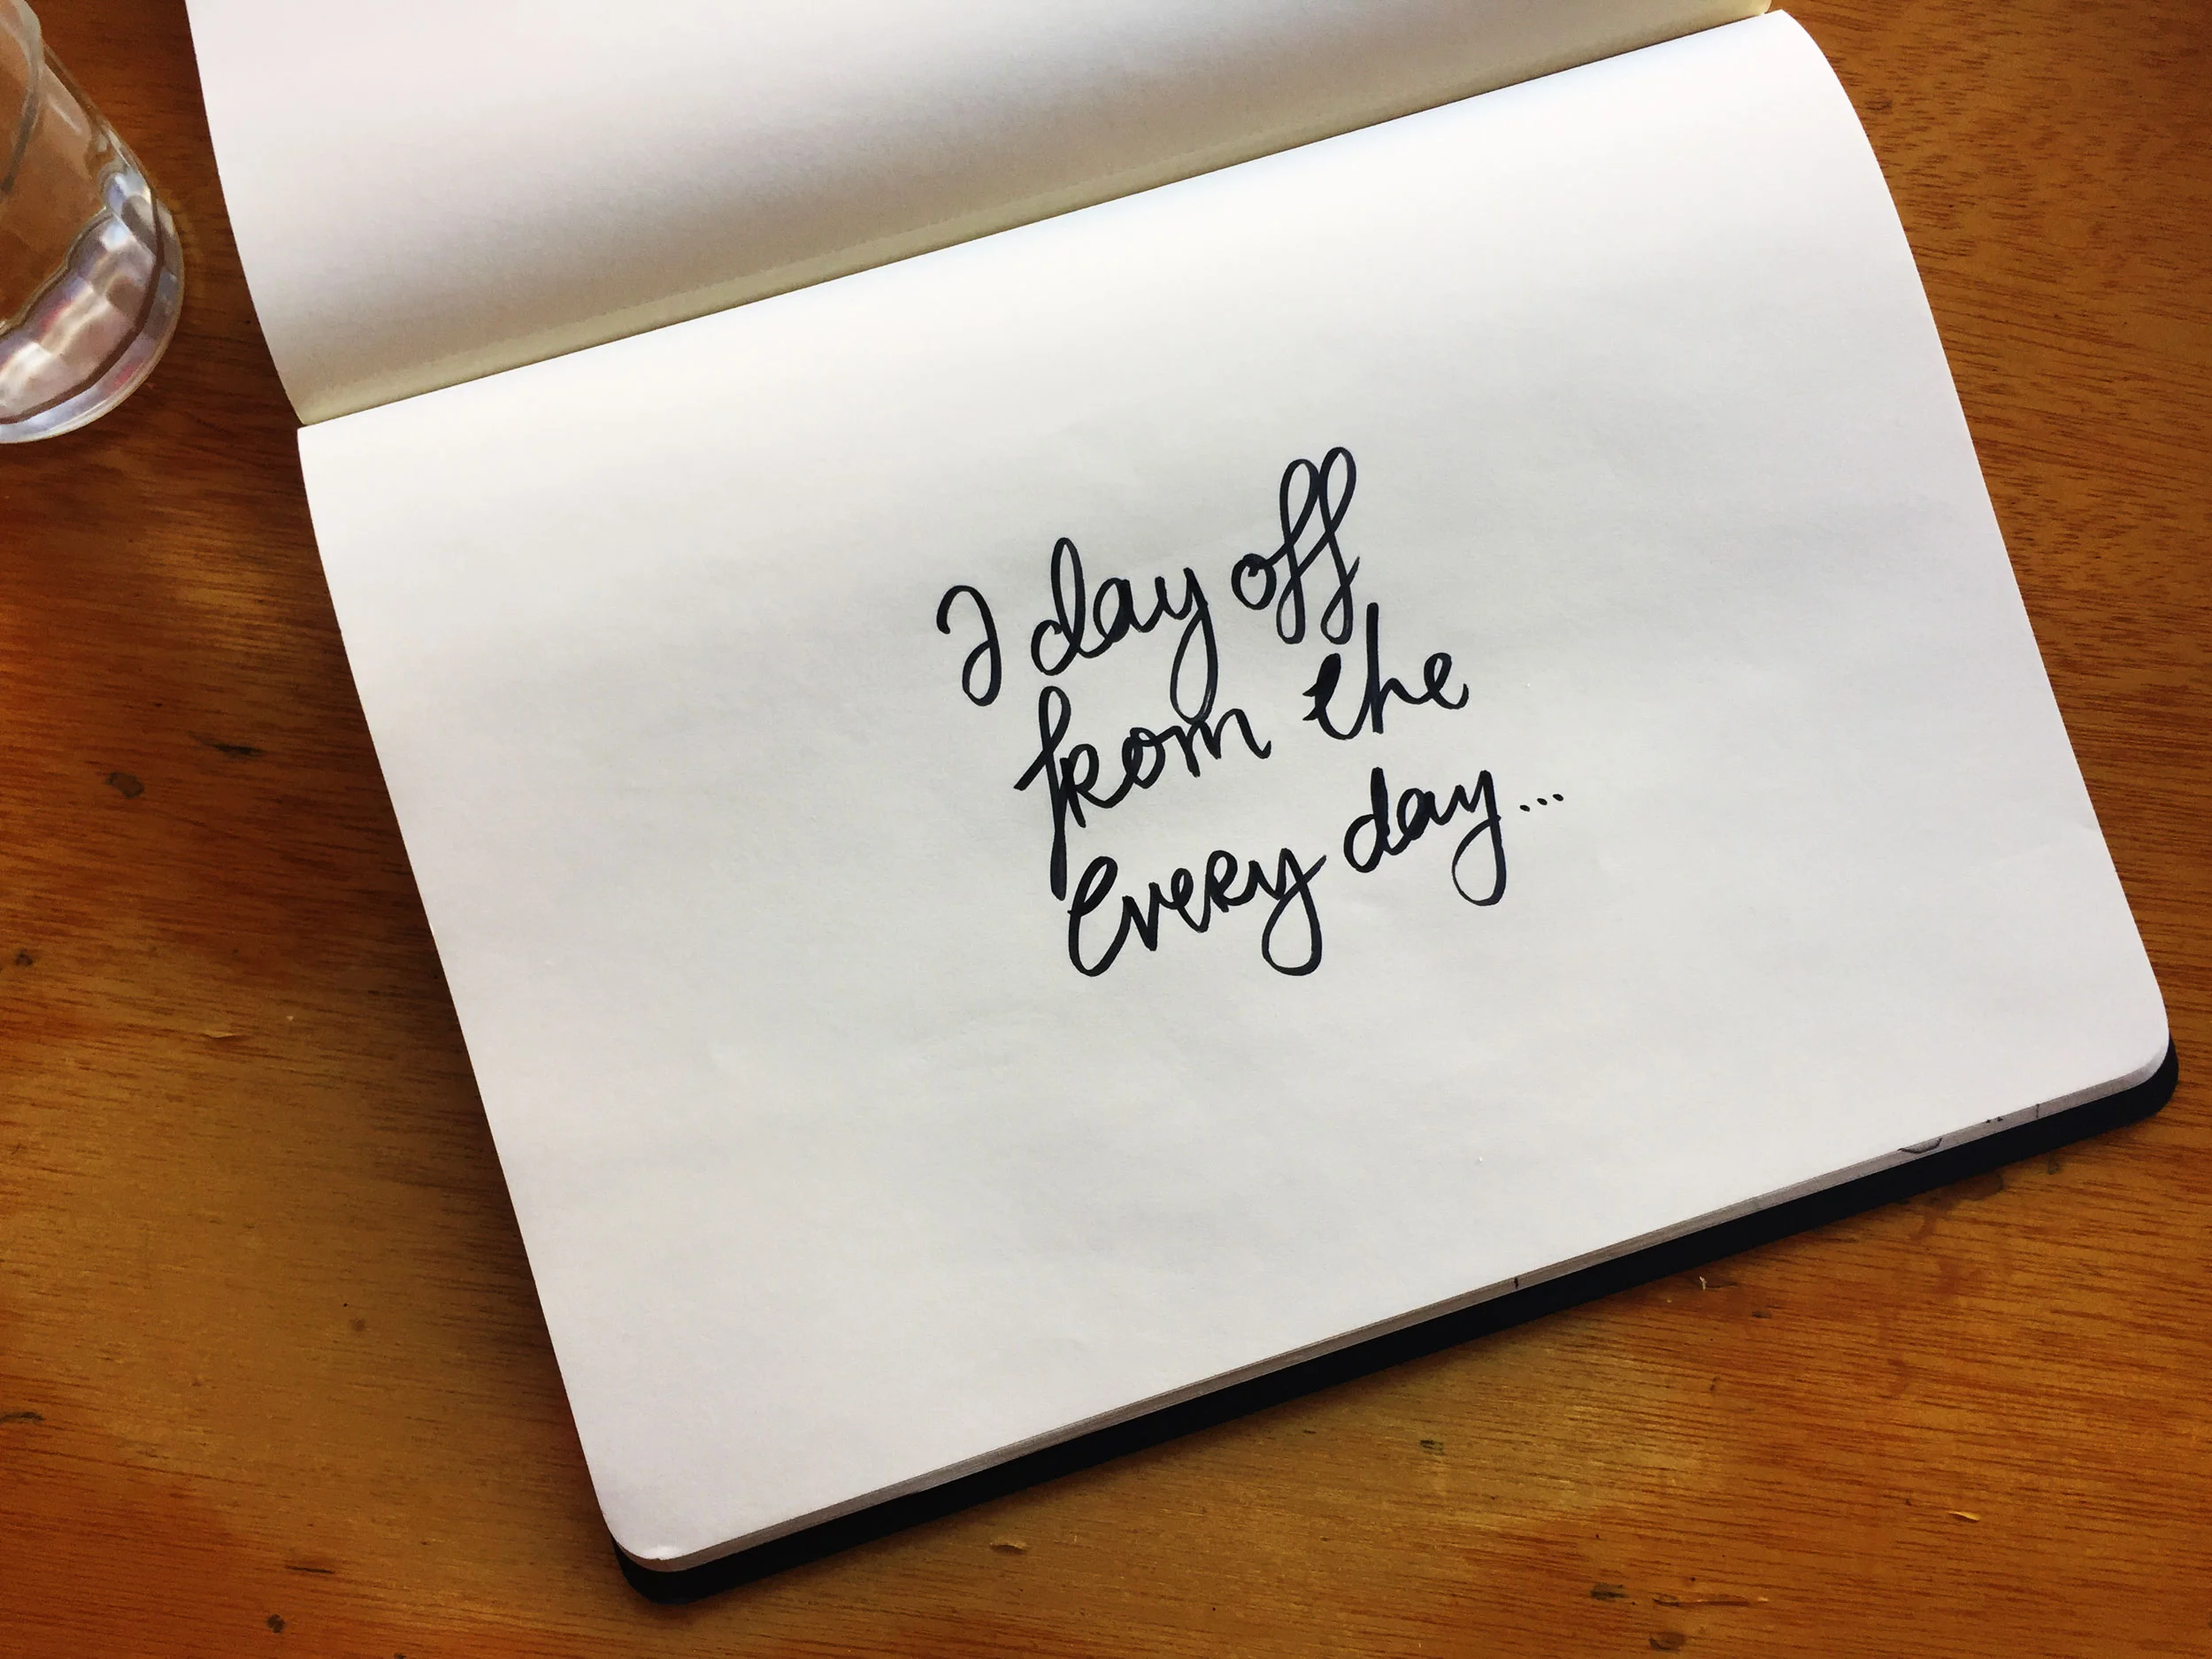 I day off
from the
every day...